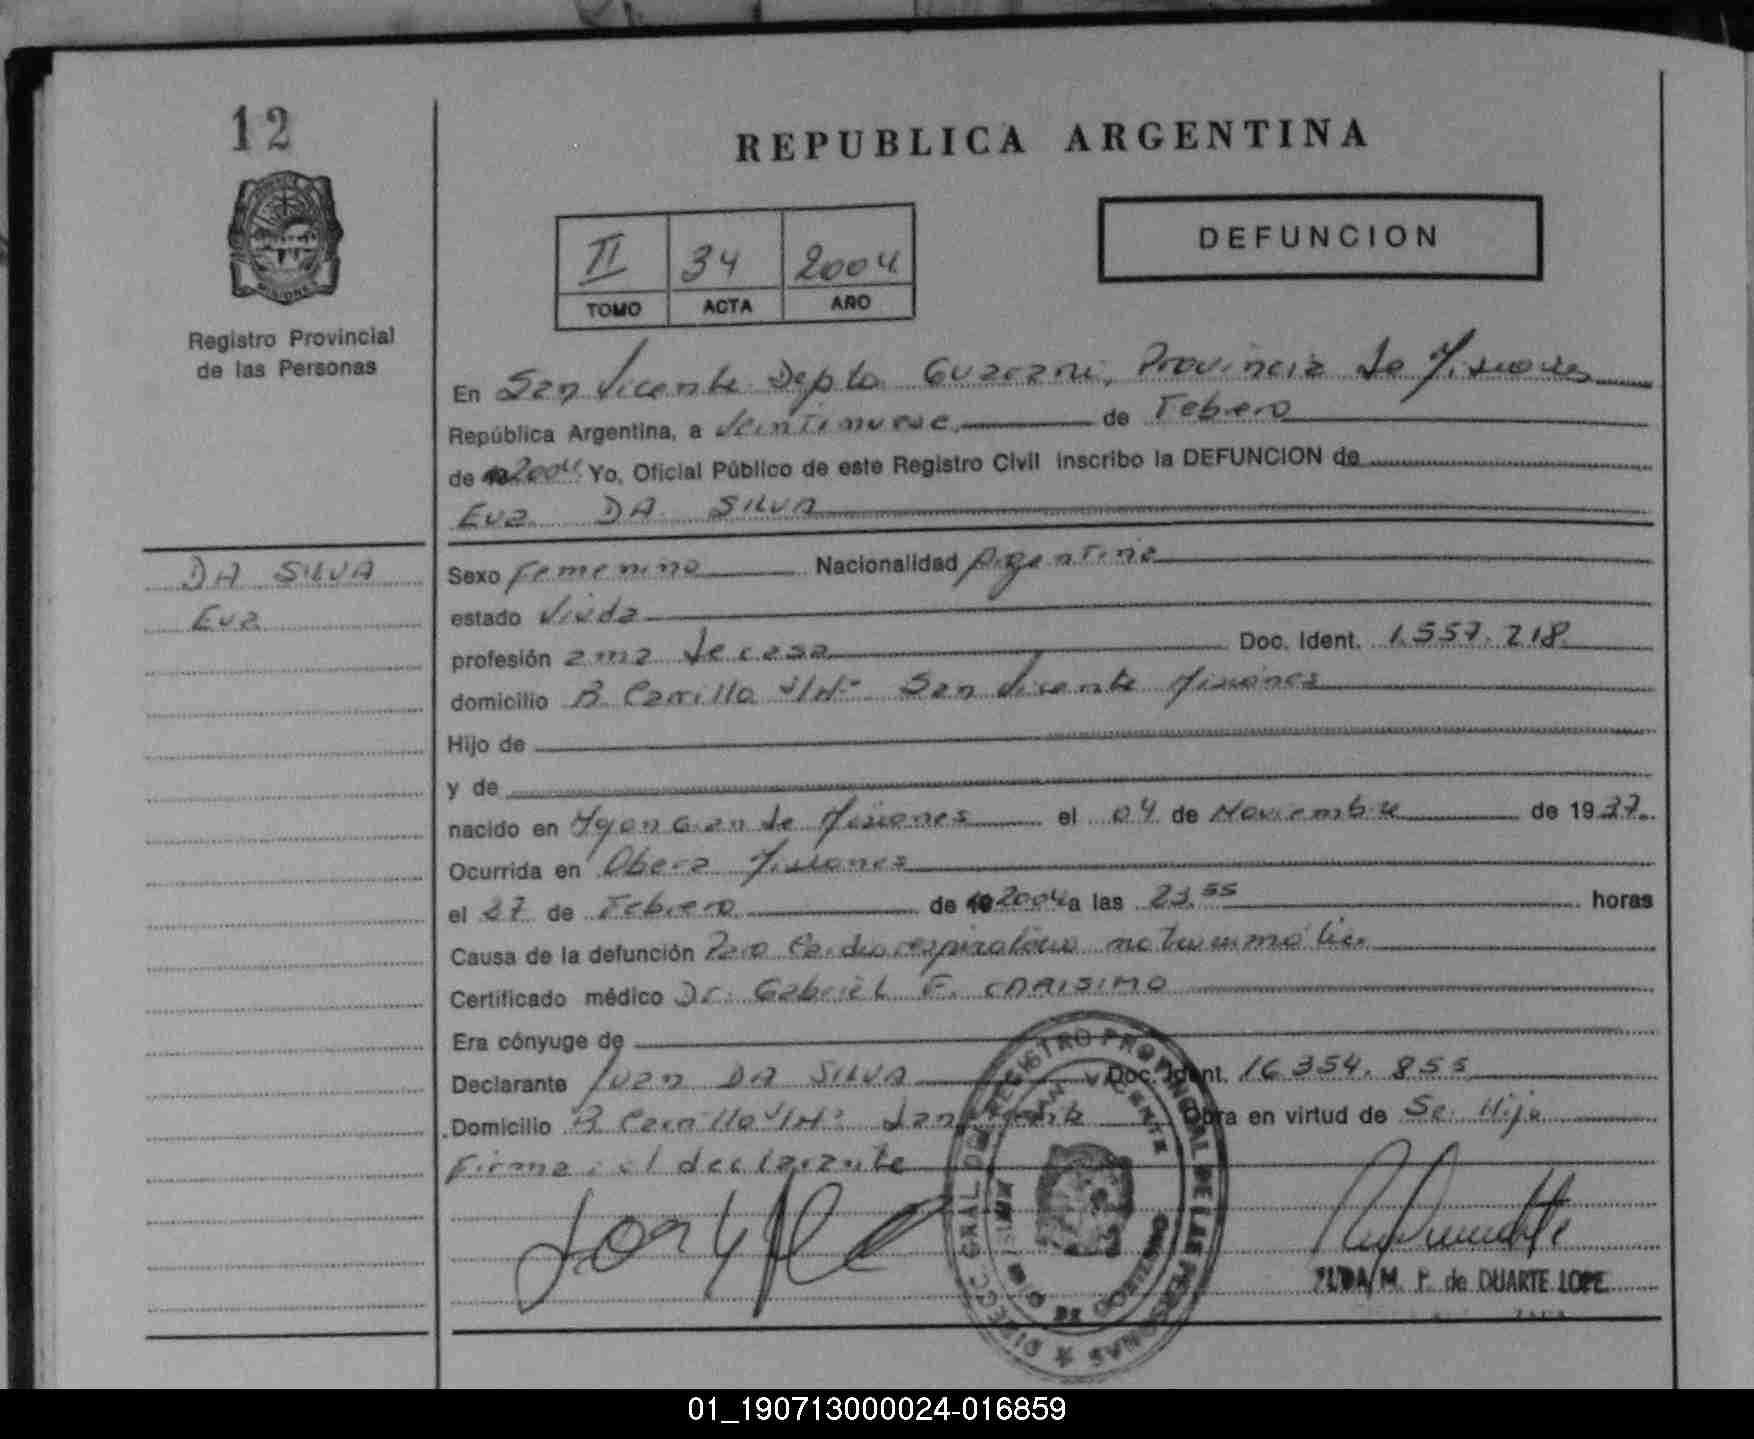 12
MISIONES
Registro Provincial
de las Personas
REPUBLICA ARGENTINA
II 34 2004
TOMO ACTA AÑO
DEFUNCION
En San Vicente Depto Guarani, Provincia de Misiones
República Argentina, a Veintinueve de Febrero
de 2004 Yo, Oficial Público de este Registro Civil inscribo la DEFUNCION de
Eva DA SILVA
DA SILVA
Eva
Sexo Femenino Nacionalidad Argentina
estado Viuda
profesión ama de casa Doc. Ident. 1.557.218
domicilio B. Carrillo S/Nº San Vicente Misiones
Hijo de
y de
nacido en de Misiones el 04 de Noviembre de 1937.
Ocurrida en Obera Misiones
el 27 de Febrero de 2004 a las 23.55 horas
Causa de la defunción Paro Cardiorespiratorio no traumático
Certificado médico Dr. Gabriel F. CHAISIMO
Era cónyuge de
Declarante Juan DA SILVA Doc. Ident. 16.354.855
Domicilio B Carrillo S/Nº San Vicente Obra en virtud de Ser Hijo
Firma: el declarante
DIRECC. GRAL. DEL REGISTRO PROVINCIAL DE LAS PERSONAS
SAN VICENTE
M. P. de DUARTE LOPE
01_190713000024-016859